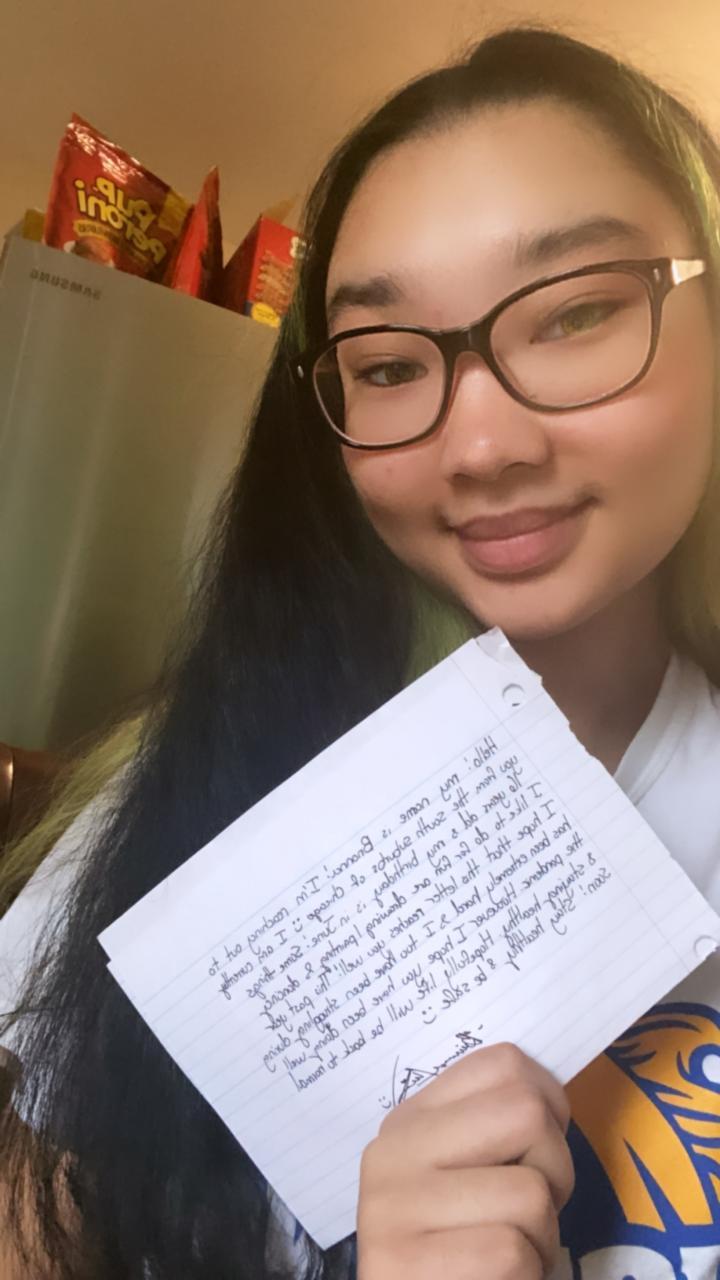 SAMSUNG
PUP
PERONI
Hello! my name is Brianna! I'm reaching out to
you from the south suburbs of chicago :) I am currently
years old & my birthday is in June! Some things
I like to do for fun are drawing, painting & dancing
I hope that this letter reaches you well! This past year
has been extremely hard & I too have been struggling during
the pandemic. However I hope you have been doing well
& staying healthy. Hopefully life will be back to normal
Soon! Stay healthy & be safe :)
-Brianna :)